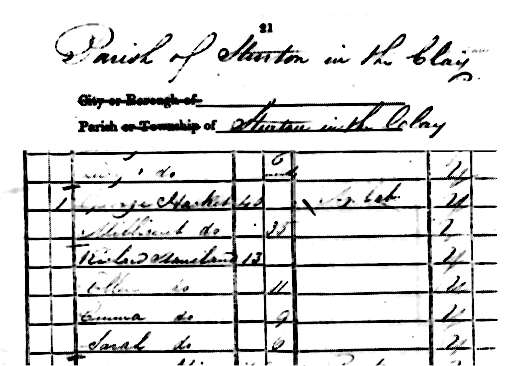 21
Parish of Sturton in the Clay
City or Borough of
Parish or Township of Sturton in the Clay
do 6
1 George 40 Ag Lab Y
Millicent do 35 Y
Richard Staniland 13 Y
do 11 Y
Emma do 9 Y
Sarah do 6 Y